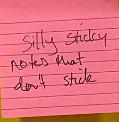 silly sticky
notes that
don't stick